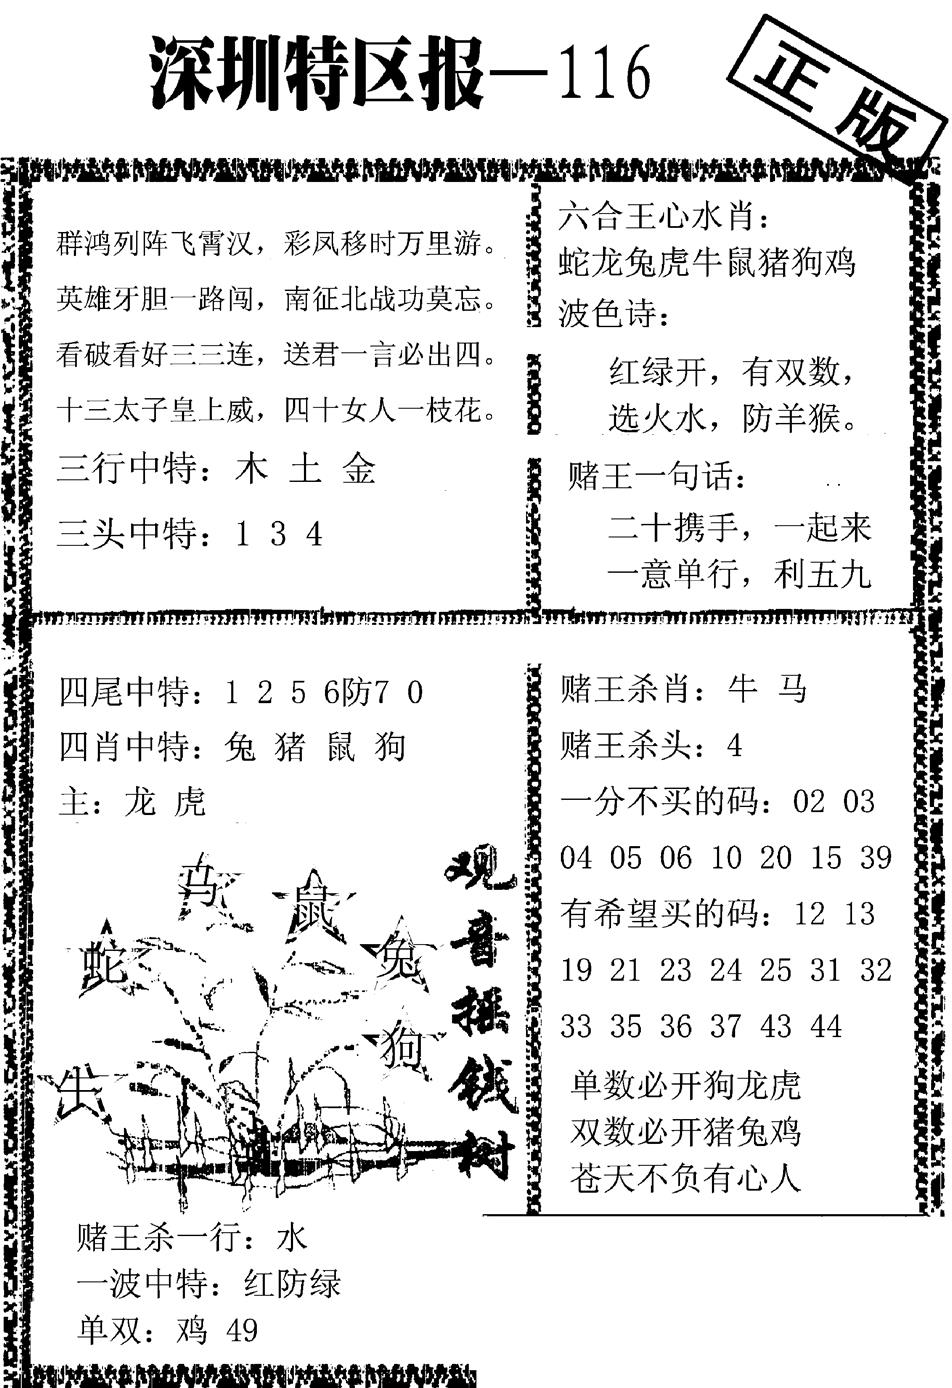 深圳特区报—116
正版
群鸿列阵飞霄汉，彩凤移时万里游。
英雄牙胆一路闯，南征北战功莫忘。
看破看好三三连，送君一言必出四。
十三太子皇上威，四十女人一枝花。
三行中特：木 土 金
三头中特：1 3 4
六合王心水肖：
蛇龙兔虎牛鼠猪狗鸡
波色诗：
红绿开，有双数，
选火水，防羊猴。
赌王一句话：
二十携手，一起来
一意单行，利五九
四尾中特：1 2 5 6防7 0
四肖中特：兔 猪 鼠 狗
主：龙 虎
马
鼠
蛇
兔
狗
牛
观音摇钱树
赌王杀一行：水
一波中特：红防绿
单双：鸡 49
赌王杀肖：牛 马
赌王杀头：4
一分不买的码：02 03
04 05 06 10 20 15 39
有希望买的码：12 13
19 21 23 24 25 31 32
33 35 36 37 43 44
单数必开狗龙虎
双数必开猪兔鸡
苍天不负有心人